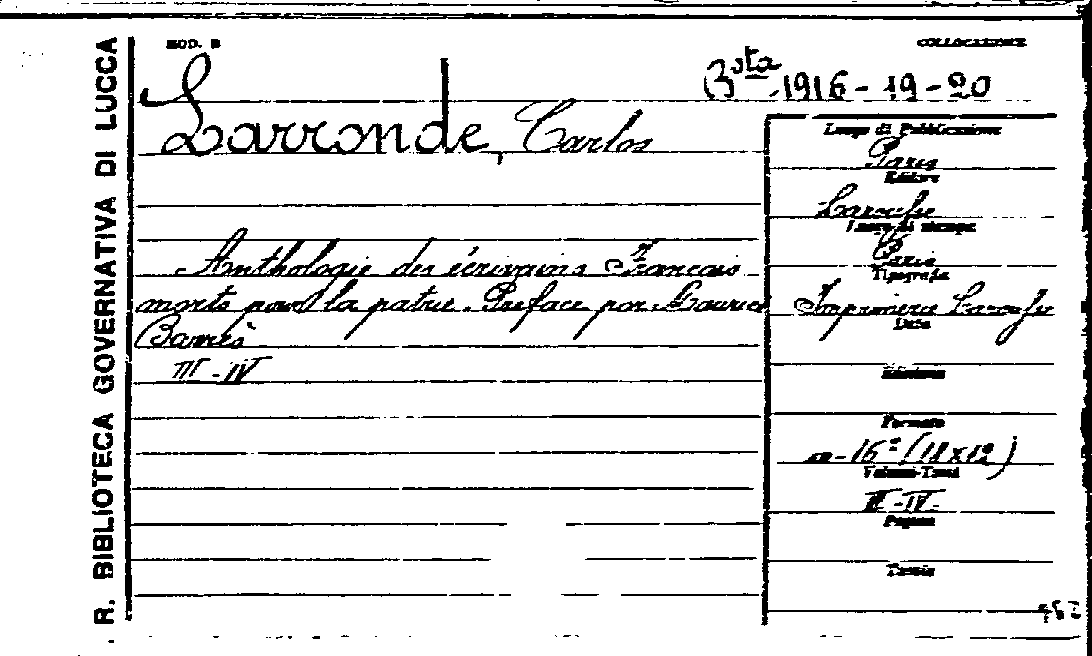 R. BIBLIOTECA GOVERNATIVA DI LUCCA
MOD. B
COLLOCAZIONE
Bsta. 1916-19-20
Larronde, Carlos
Anthologie des écrivains Français
morts pour la patrie. Preface par Maurice
Barrès.
III-IV
Luogo di Pubblicazione
Paris
Editore
Larousse
Luogo di stampa
Paris
Tipografia
Imprimerie Larousse
Data
Edizione
Formato
in-16º (18x12)
Volumi-Tomi
III-IV-
Pagine
Tavole